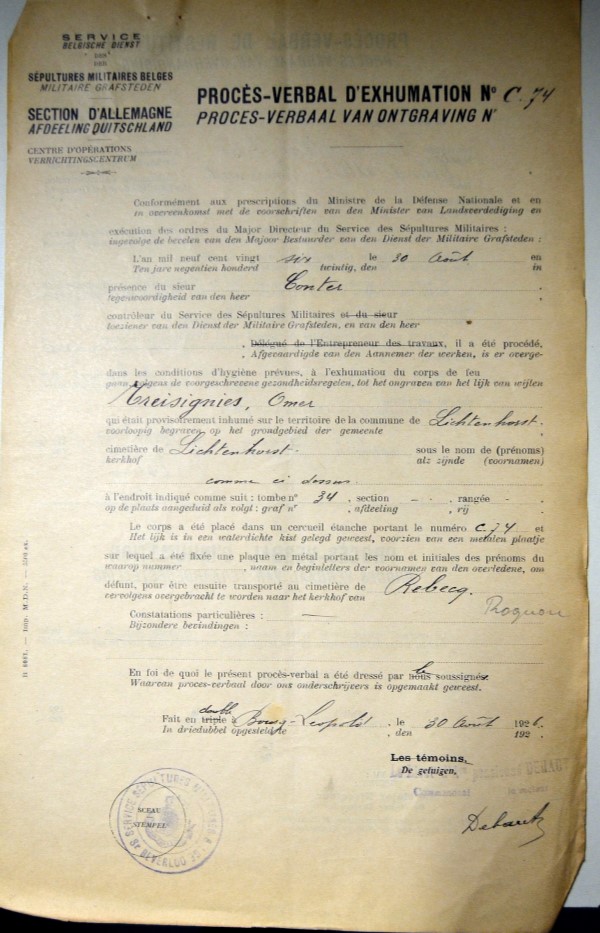 SERVICE
BELGISCHE DIENST
DES
DER
SÉPULTURES MILITAIRES BELGES
MILITAIRE GRAFSTEDEN
SECTION D'ALLEMAGNE
AFDEELING DUITSCHLAND
CENTRE D'OPÉRATIONS
VERRICHTINGSCENTRUM
PROCÈS-VERBAL D'EXHUMATION N° C.74
PROCES-VERBAAL VAN ONTGRAVING Nr
Conformément aux prescriptions du Ministre de la Défense Nationale et en
In overeenkomst met de voorschriften van den Minister van Landsverdediging en
exécution des ordres du Major Directeur du Service des Sépultures Militaires :
ingevolge de bevelen van den Majoor Bestuurder van den Dienst der Militaire Grafsteden :
L'an mil neuf cent vingt six le 30 Août en
Ten jare negentien honderd twintig, den in
présence du sieur Conter ,
tegenwoordigheid van den heer
contrôleur du Service des Sépultures Militaires et du sieur
toeziener van den Dienst der Militaire Grafsteden, en van den heer
, Délégué de l'Entrepreneur des travaux, il a été procédé,
, Afgevaardigde van den Aannemer der werken, is er overge-
dans les conditions d'hygiène prévues, à l'exhumation du corps de feu
gaan, volgens de voorgeschrevene gezondheidsregelen, tot het ongraven van het lijk van wijlen
Treisignies, Omer
qui était provisoirement inhumé sur le territoire de la commune de Lichtenhorst.
voorloopig begraven op het grondgebied der gemeente ,
cimetière de Lichtenhorst. sous le nom de (prénoms)
kerkhof als zijnde (voornamen)
comme ci dessus
à l'endroit indiqué comme suit : tombe n° 34 , section - , rangée - .
op de plaats aangeduid als volgt : graf nr , afdeeling , rij .
Le corps a été placé dans un cercueil étanche portant le numéro C.74 et
Het lijk is in een waterdichte kist gelegd geweest, voorzien van een metalen plaatje
sur lequel a été fixée une plaque en métal portant les nom et initiales des prénoms du
waarop nummer , naam en beginletters der voornamen van den overledene, om
défunt, pour être ensuite transporté au cimetière de Rebecq.
vervolgens overgebracht te worden naar het kerkhof van
Rognon
Constatations particulières : —
Bijzondere bevindingen :
En foi de quoi le présent procès-verbal a été dressé par nous le soussignés
Waarvan proces-verbaal door ons onderschrijvers is opgemaakt geweest.
double
Fait en triple à Bourg-Léopold , le 30 Août 1926.
In driedubbel opgesteld te , den 192 .
Les témoins,
De getuigen,
Debautz
SERVICE SÉPULTURES MILITAIRES
SCEAU
STEMPEL
BEVERLOO
H 6661. — Imp. M.D.N. —